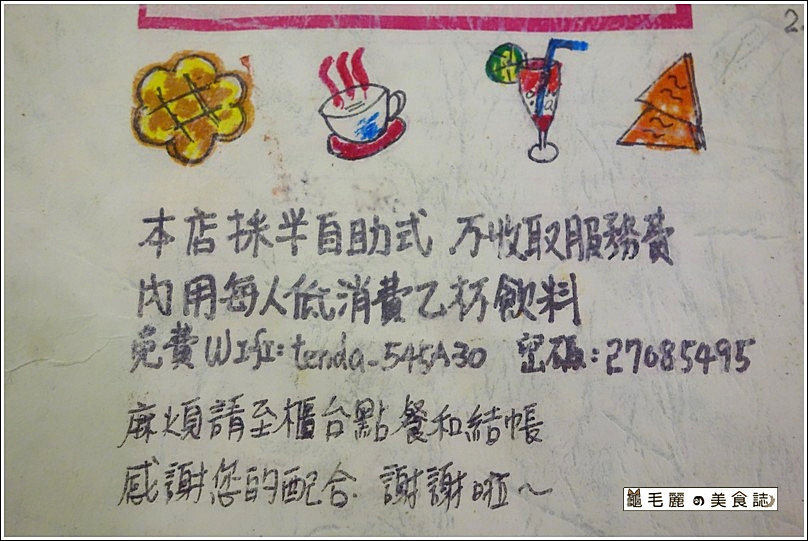 2
本店採半自助式 不收取服務費
內用每人低消費乙杯飲料
免費Wifi:tenda_545A30 密碼:27685495
麻煩請至櫃台點餐和結帳
感謝您的配合. 謝謝啦~
龜毛麗の美食誌